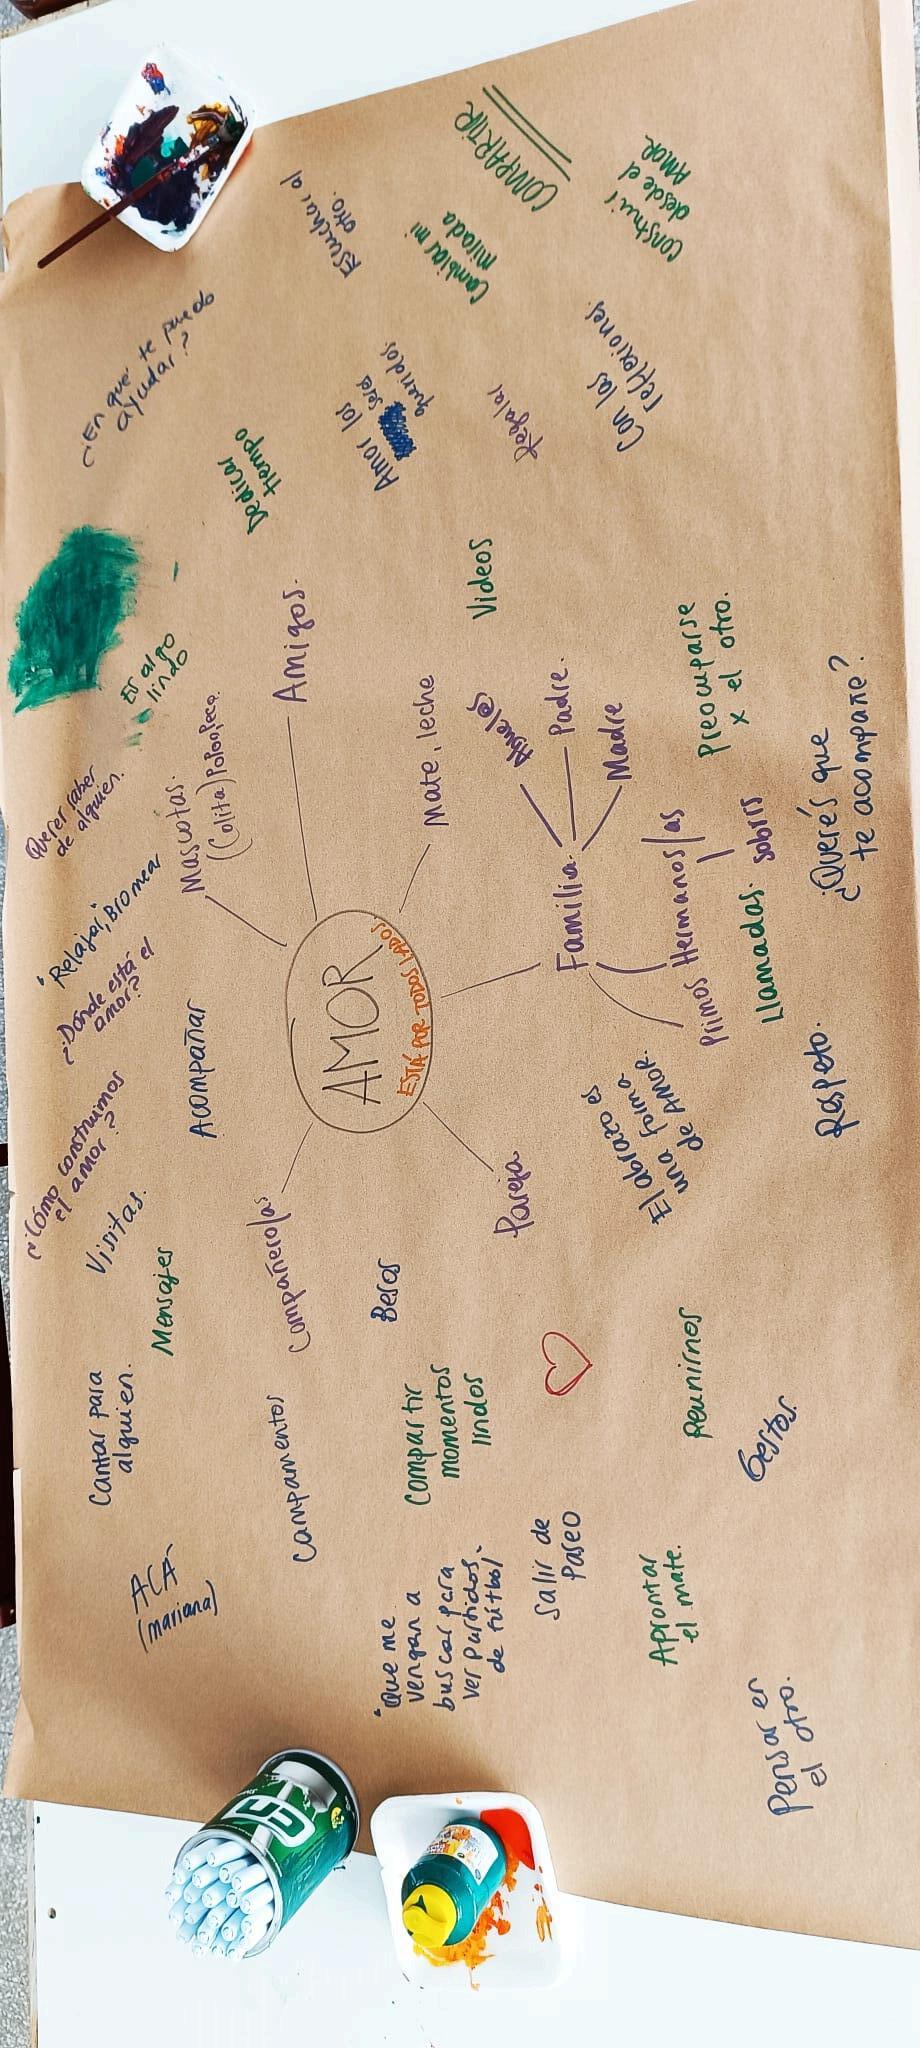 ACÁ
(mariana)
Cantar para
alguien.
Visitas.
Mensajes
¿Cómo construimos
el amor?
¿Dónde está el
amor?
"Relajar", Bromear
Querer saber
de alguien.
Es algo
lindo
¿En qué te puedo
ayudar?
Campamentos
Compañero/as
Acompañar
Mascotas.
(Colita)
Amigos.
Dedicar
tiempo
Escuchar al
otro.
"Que me
vengan a
buscar para
ver partidos
de fútbol
Compartir
momentos
lindos
Besos
AMOR
ESTÁ POR TODOS LADOS
Mate, leche
Amor los
seres
queridos.
Cambiar mi
mirada
COMPARTIR
Salir de
Paseo
Pareja
Familia
Abuelos
Padre.
Madre
Hermanos/as
Primos
sobris
Videos
Regalar
Con las
reflexiones
construir
desde el
AMOR
Aprontar
el mate.
Reunirnos
El abrazo es
una forma
de AMOR.
Llamadas.
Preocuparse
x el otro.
Pensar en
el otro.
Gestos
Respeto.
¿Querés que
te acompañe?